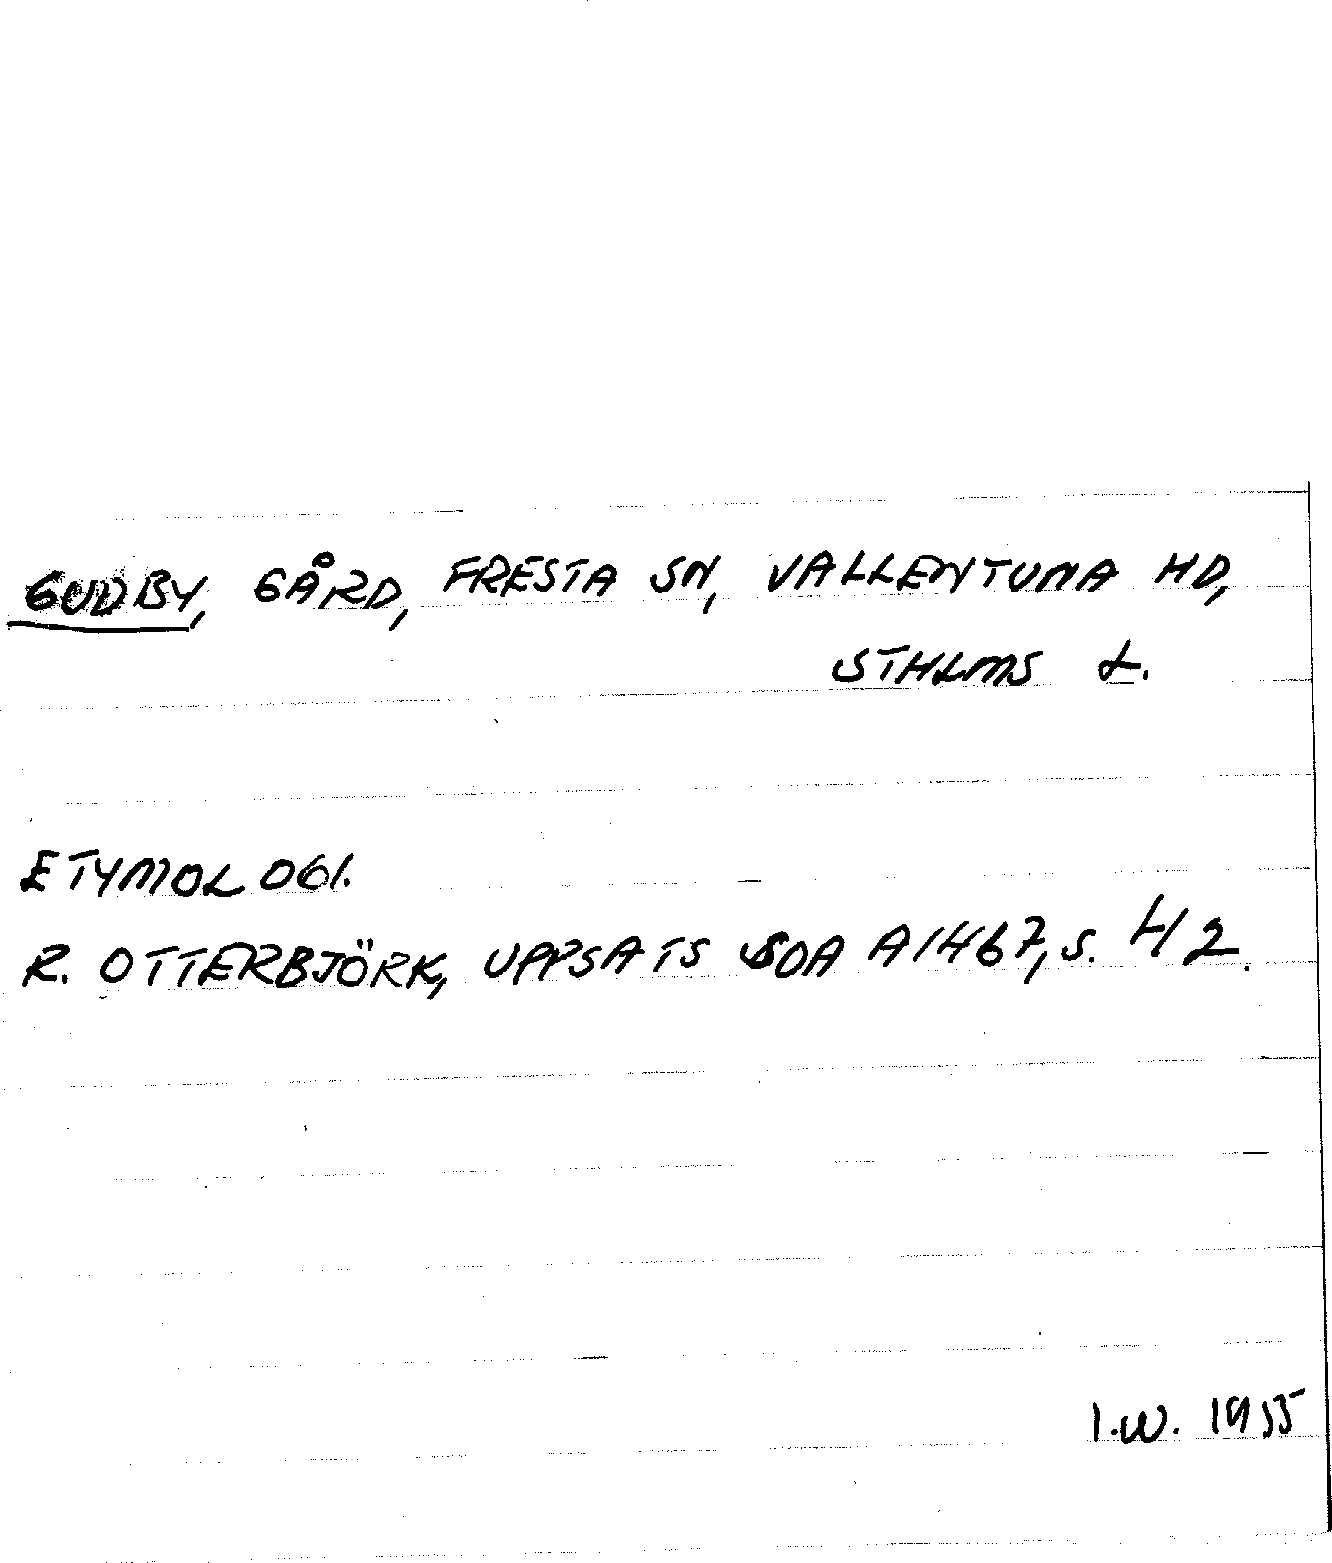 GUDBY, GÅRD, FRESTA SN, VALLENTUNA HD,
STHLMS L.
ETYMOLOGI.
R. OTTERBJÖRK, UPPSATS SOA A1467, S. 42.
I.W. 1955